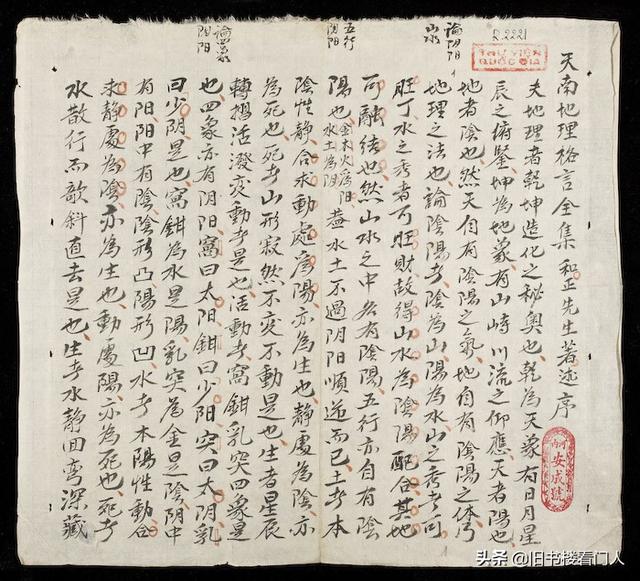 R.2221
THƯ VIỆN
QUỐC GIA
論阴阳
山水
五行
阴阳
論四象
阴阳
天南地理格言全集 和正先生著述序
夫地理者乾坤造化之秘奧也乾為天蒙有日月星
辰之俯鑒坤為地蒙有山峙川流之仰應天者陽也
地者陰也然天自有陰陽之氣地自有陰陽之体乃
地理之法也論陰陽者陰為山陽為水山之秀者可
旺丁水之秀者可旺財故得山水為陰陽配合其地
可融結也然山水之中各有陰陽五行亦自有陰
陽也金木火為阳水土為阴蓋水土不過阴阳順逆而已土者本
陰性静合求動處為陽亦為生也静處為陰亦
為死也死者山形寂然不变不動是也生者星辰
轉摺活潑变動者是也活動者窩鉗乳突四象是
也四象亦有阴阳窩曰太阳鉗曰少阳突曰太阴乳
曰少阴是也窩鉗為水是陽乳突為金是陰阴中
有阳阳中有陰陰形凸陽形凹水者本陽性動合
求静處為陰亦為生也動處陽亦為死也死者
水散行而欹斜直去是也生者水静回弯深藏
河内
安成號
头条 @旧书楼看门人